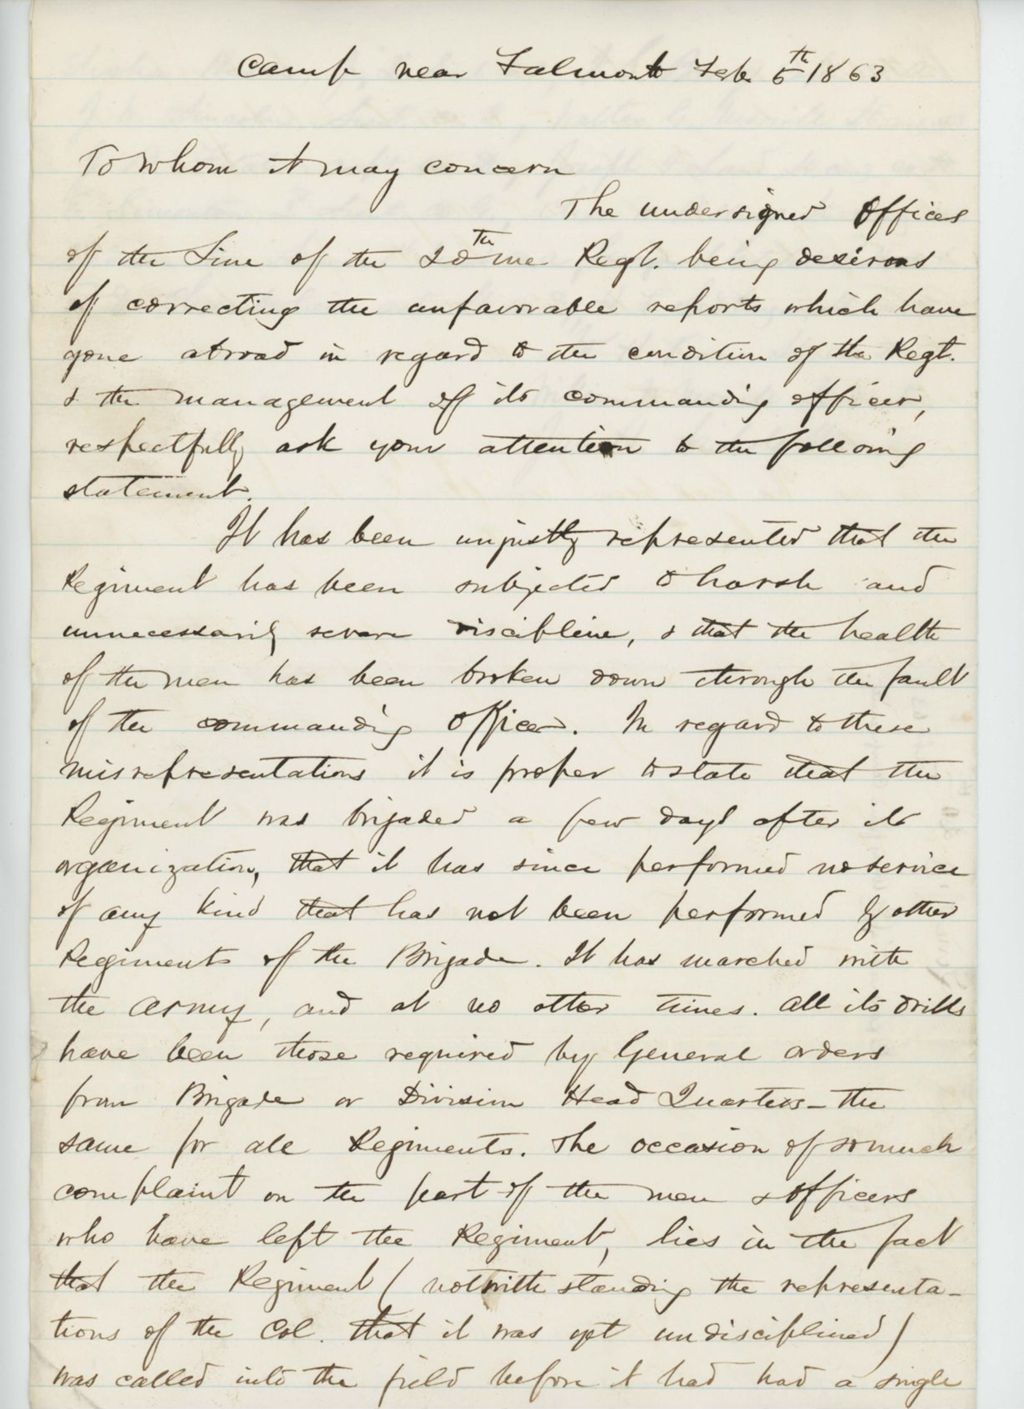 Camp near Falmouth Feb 5th 1863
To Whom it may concern
The undersigned Officers
of the Line of the 20th Me Regt. being desirous
of correcting the unfavorable reports which have
gone abroad in regard to the condition of the Regt.
& the management of its commanding officer,
respectfully ask your attention to the following
statement.
It has been unjustly represented that the
Regiment has been subjected to harsh and
unnecessarily severe discipline, & that the health
of the men has been broken down through the fault
of the commanding Officer. In regard to these
misrepresentations it is proper to state that the
Regiment was brigaded a few days after its
organization, that it has since performed no service
of any kind that has not been performed by other
Regiments of the Brigade. It has marched with
the Army, and at no other times. All its drills
have been those required by General orders
from Brigade or Division Head Quarters - the
same for all Regiments. The occasion of so much
complaint on the part of the men & officers
who have left the Regiment, lies in the fact
that the Regiment (notwithstanding the representa-
tions of the Col. that it was yet undisciplined)
was called into the field before it had had a single